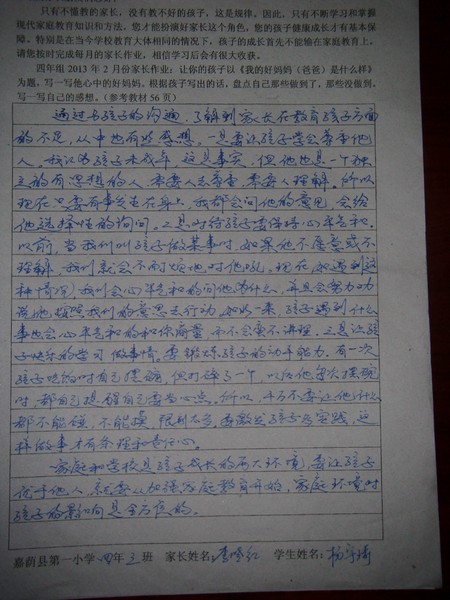 只有不懂教的家长，没有教不好的孩子，这是规律。因此，只有不断学习和掌握
现代家庭教育知识和方法，您才能扮演好家长这个角色，您的孩子健康成长才有基本保
障。特别是在当今学校教育大体相同的情况下，孩子的成长首先不能输在家庭教育上。
请您按时完成每月的家长作业，相信学习后会有很大收获。
四年组 2013 年 2 月份家长作业：让你的孩子以《我的好妈妈（爸爸）是什么样》
为题，写一写他心中的好妈妈。根据孩子写出的话，盘点自己那些做到了，那些没做到、
写一写自己的感想。（参考教材 56 页）
通过与孩子的沟通，了解到家长在教育孩子方面
的不足，从中也有些感想。一是要让孩子学会尊重他
人。我认为孩子未成年，这是事实，但他也是一个独
立的有思想的人，需要人去尊重，需要人理解。所以
现在只要有事发生在身上，我都会问他的意见，会给
他选择性的询问。二是对待孩子要保持心平气和。
以前，当我们叫孩子做某事时，如果他不愿意或不
理解，我们就会不耐烦地对他吼，现在，如遇到这
种情况，我们会心平气和的问他为什么，并且会努力劝
说他按照我们的意思去行动，如此一来，孩子遇到什么
事也会心平气和的和你商量，而不会蛮不讲理。三是让孩
子快乐的学习、做事情，要锻炼孩子的动手能力。有一次
孩子洗碗时自己摆碗，但打碎了一个，以后他每次摆碗
时，都自己提醒自己要当心点。所以，千万不要让他什么
都不能碰，不能摸，限制太多，要激发孩子去实践，这
样做事才有条理和责任心。
家庭和学校是孩子成长的两大环境，要让孩子
优于他人，就要从加强家庭教育开始，家庭环境对
孩子的影响是全方位的。
嘉荫县第一小学 四年 3 班 家长姓名：李 红 学生姓名：杨宇琦